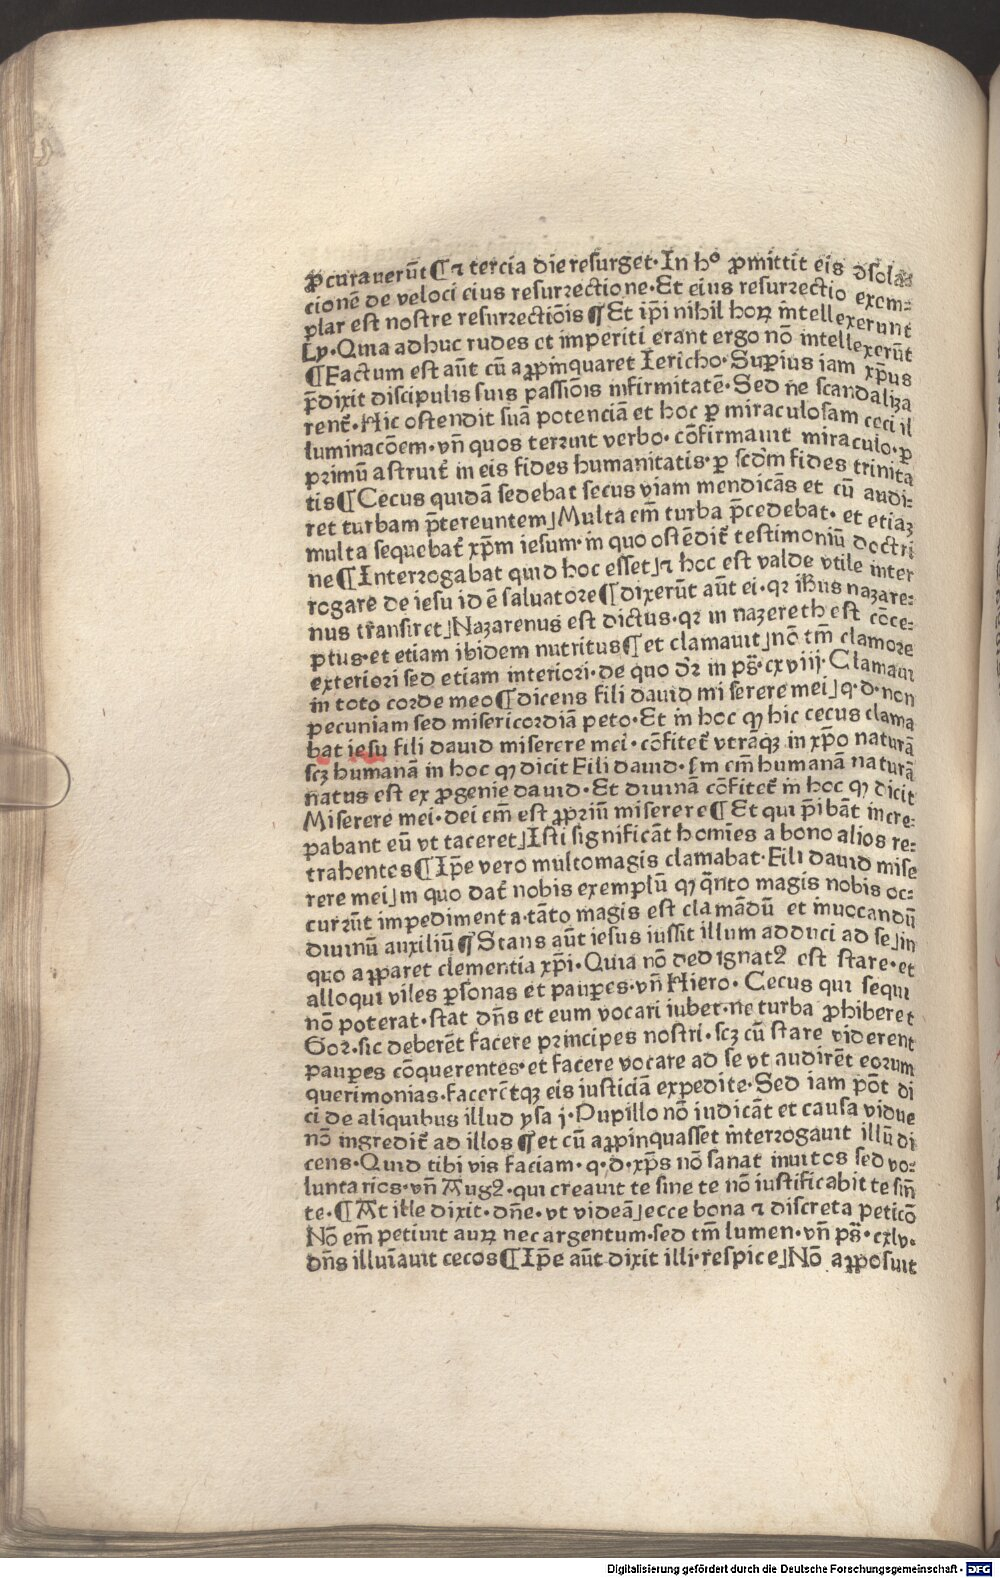 ꝓcurauerūt ¶ ⁊ tercia die resurget· In h° ꝓmittit eis ꝺsola⸗
cionē de veloci eius resurrectione· Et eius resurrectio exem⸗
plar est nostre resurrectiōis ¶ Et ip̄i nihil hoꝝ ītellexerunt
Ly· Quia adhuc rudes et imperiti erant ergo nō intellexerūt
¶ Factum est aūt cū aꝓpinquaret Iericho· Suꝑius iam xp̄us
p̄dixit discipulis suis passiōis infirmitatē· Sed ne scandaliza
rent̄· Hic ostendit suā potenciā et hoc ꝑ miraculosam ceci il
luminacōem· vn̄ quos terruit verbo· cōfirmauit miraculo· ꝑ
primū astruit̄ in eis fides humanitatis· ꝑ scd̄m fides trinita
tis ¶ Cecus quidā sedebat secus viam mendicās et cū audi⸗
ret turbam p̄tereuntem] Multa em̄ turba p̄cedebat· et etiaꝫ
multa sequebat̄ xp̄m iesum· in quo ostēdit̄ testimoniū doctri
ne ¶ Interrogabat quid hoc esset] ⁊ hoc est valde vtile inter
rogare de iesu id ē saluatore ¶ dixerūt aūt ei· qꝛ ihūs nazare⸗
nus trāsiret] Nazarenus est dictus· qꝛ in nazereth est cōce⸗
ptus· et etiam ibidem nutritus ¶ et clamauit] nō tm̄ clamore
exteriori sed etiam interiori· de quo dr̄ in ps̄· cxviij· Clamaui
in toto corde meo ¶ dicens fili dauid mi serere mei] q· d· non
pecuniam sed misericordiā peto· Et in hoc ꝙ hic cecus clama
bat iesu fili dauid miserere mei· cōfitet̄ vtrāqꝫ in xp̄o naturā
scꝫ humanā in hoc ꝙ dicit Fili dauid· sm̄ em̄ humanā naturā
natus est ex ꝓgenie dauid· Et diuinā cōfitet̄ in hoc ꝙ dicit
Miserere mei· dei em̄ est ꝓpriū miserere ¶ Et qui p̄ibāt incre⸗
pabant eū vt taceret] Isti significāt homīes a bono alios re⸗
trahentes ¶ Ip̄e vero multomagis clamabat· Fili dauid mise
rere mei] in quo dat̄ nobis exemplū ꝙ q̄nto magis nobis oc⸗
currūt impedimenta· tāto magis est clamādū et inuocandū
diuinū auxiliū ¶ Stans aūt iesus iussit illum adduci ad se] in
quo aꝑparet clementia xp̄i· Quia nō dedignatꝰ est stare· et
alloqui viles ꝑsonas et pauꝑes· vn̄ Hiero· Cecus qui sequi
nō poterat· stat dn̄s et eum vocari iubet· ne turba ꝓhiberet
Gor· sic deberēt facere principes nostri· scꝫ cū stare viderent
pauꝑes cōquerentes· et facere vocare ad se vt audirēt eorum
querimonias· facerētqꝫ eis iusticiā expedite· Sed iam pōt di
ci de aliquibus illud ysa j· Pupillo nō iudicāt et causa vidue
nō ingredit̄ ad illos ¶ et cū aꝓpinquasset īterrogauit illū di
cens· Quid tibi vis faciam· q· d· xp̄s nō sanat inuitos sed vo⸗
luntarios· vn̄ Augꝰ· qui creauit te sine te nō iustificabit te sin̄
te· ¶ At ille dixit· dn̄e· vt videā] ecce bona ⁊ discreta peticō
Nō em̄ petiuit auꝝ nec argentum· sed tm̄ lumen· vn̄ ps̄· cxlv·
dn̄s illuīauit cecos ¶ Ip̄e aūt dixit illi· respice] Nō aꝓposuit
Digitalisierung gefördert durch die Deutsche Forschungsgemeinschaft - DFG